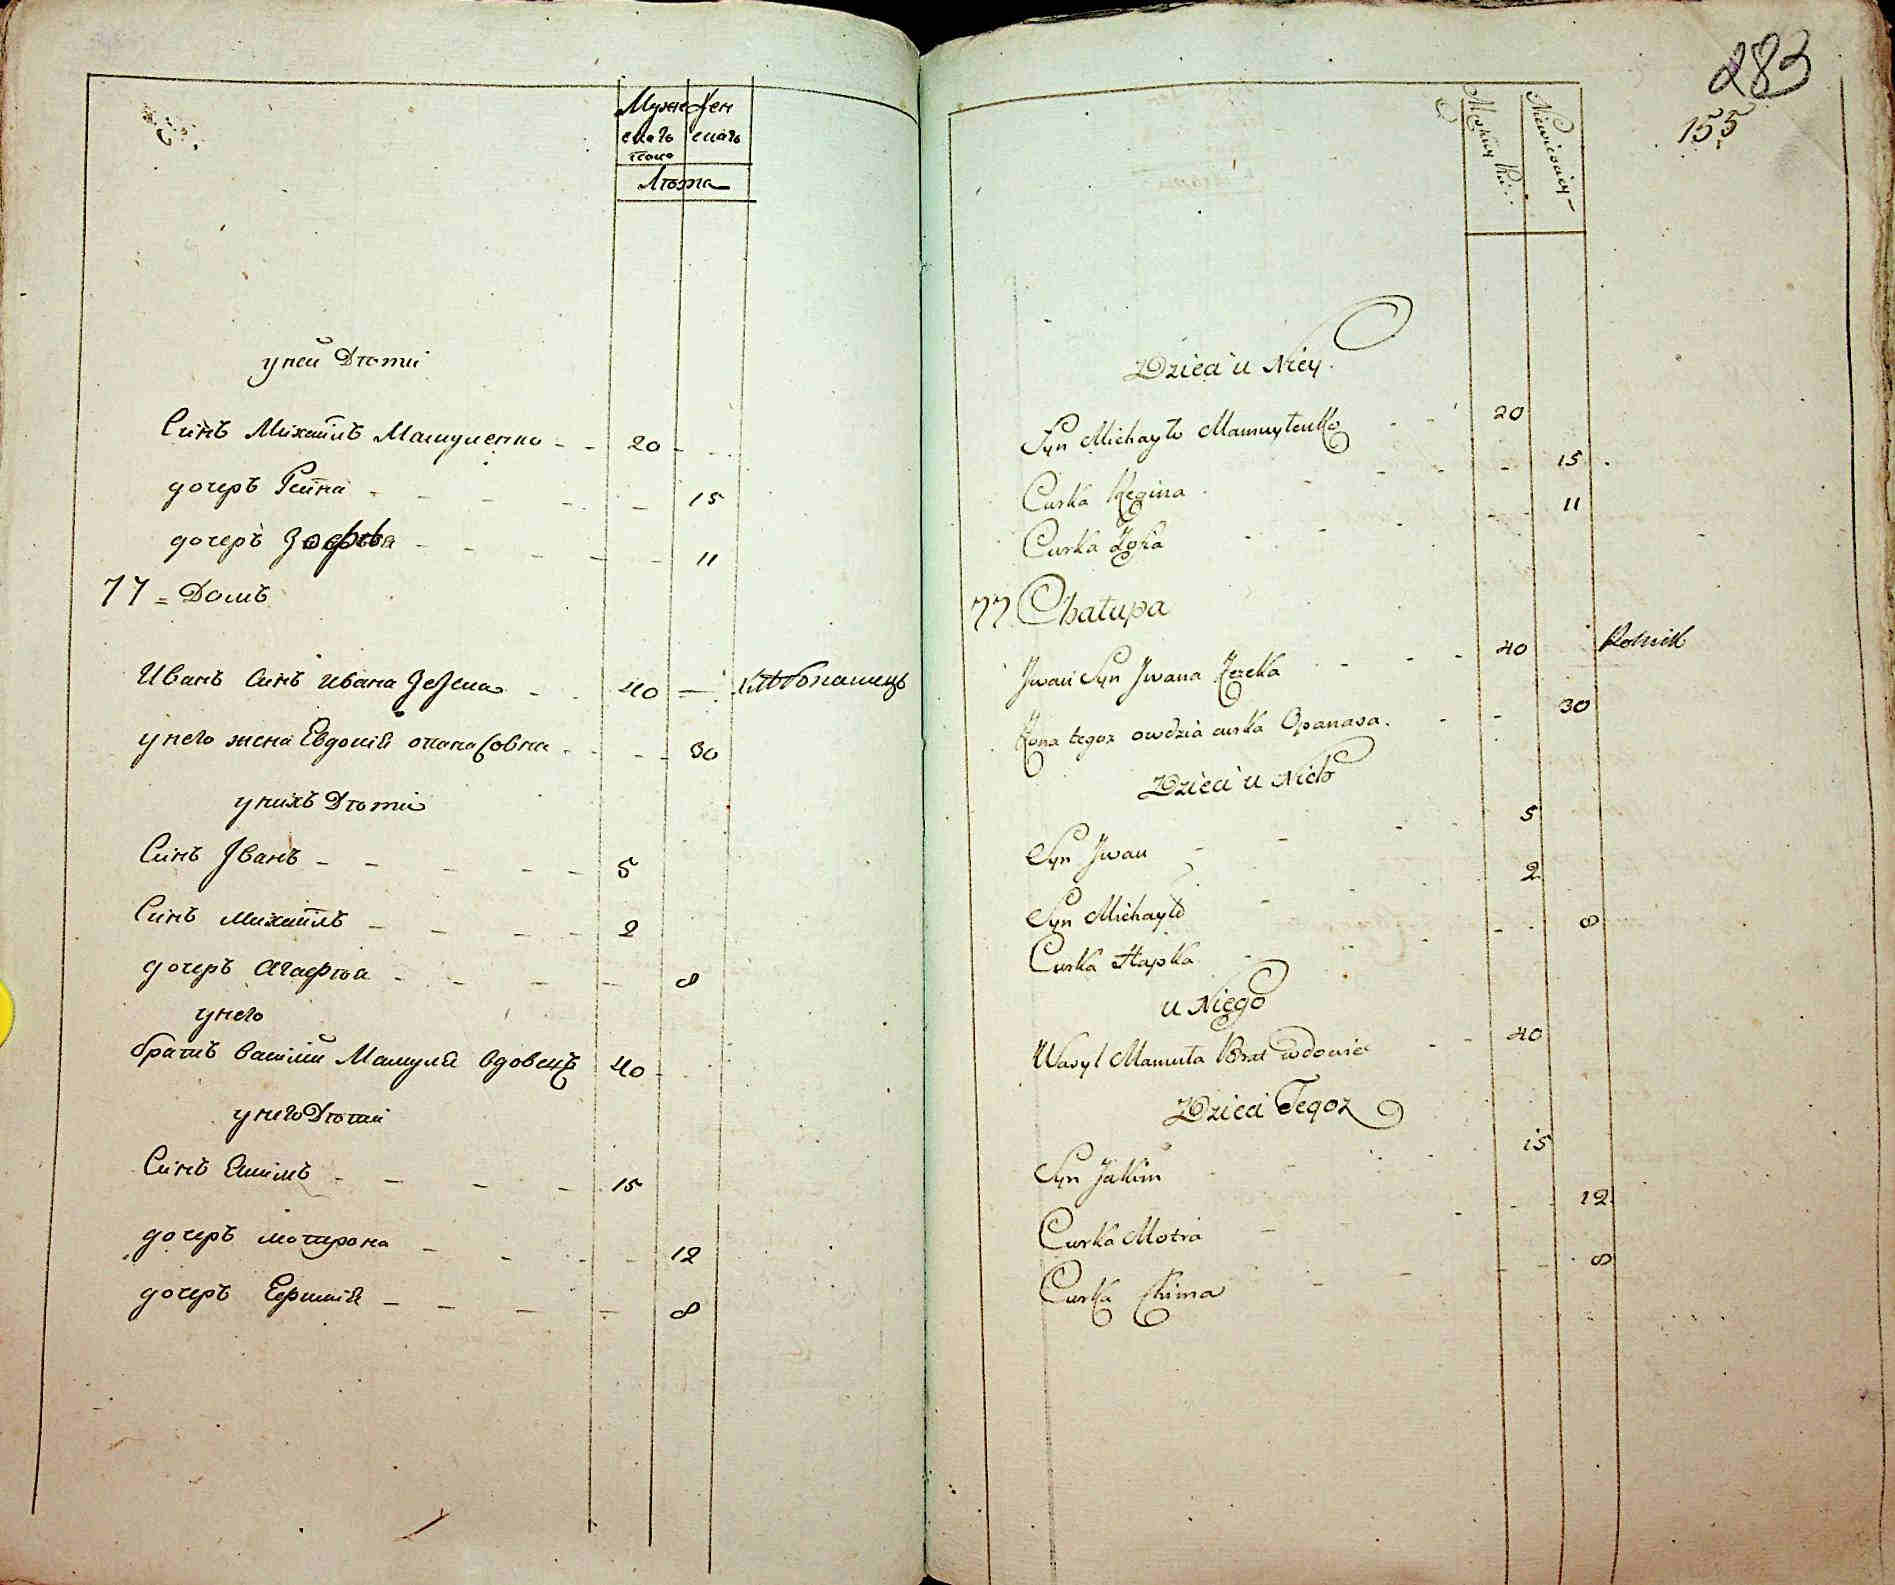 Муже
ска​го
пола
Жен
скаго
Лѣта
у ней Дѣти
Синъ Михаилъ Мамуленко 20
дочеръ Реина 15
дочеръ Зофѣя 11
77 = Домъ
Иванъ Синъ Ивана 40 хлѣбопашецъ
у него жена Евдокия опанасовна 30
у нихъ Дѣти
Синъ Иванъ 5
Синъ михаилъ 2
дочеръ агафѣя 8
у него
братъ василий Мамула вдовецъ 40
у него Дѣти
Синъ Екимъ 15
дочеръ мотрона 12
дочеръ Ефимия 8
283
155
Dzieci u Niey
Syn Michayło Mamuylenko 20
Curka Regina 15
Curka Zofia 11
77 Chałupa
Jwan Syn Jwana 40 Rolnik
Żona tegoz owdzia curka Opanasa 30
Dzieci u Nich
Syn Jwan 5
Syn Michayło 2
Curka Hapka 8
u Niego
Wasyl Mamuła Brat wdowiec 40
Dzieci Tegoz
Syn Jakim 15
Curka Motra 12
Curka Chima 8